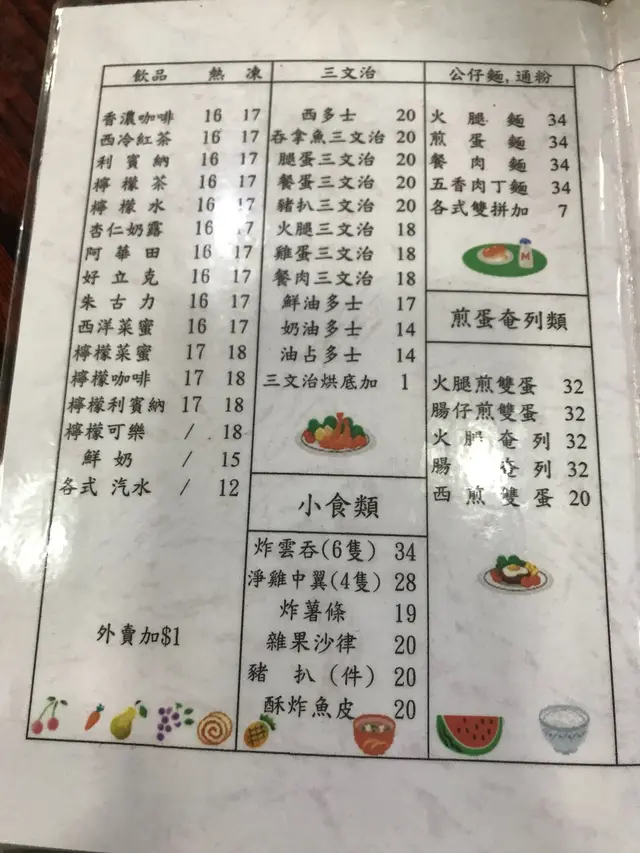 飲品 熱 凍
香濃咖啡 16 17
西冷紅茶 16 17
利賓納 16 17
檸檬茶 16 17
檸檬水 16 17
杏仁奶露 16 17
阿華田 16 17
好立克 16 17
朱古力 16 17
西洋菜蜜 16 17
檸檬菜蜜 17 18
檸檬咖啡 17 18
檸檬利賓納 17 18
檸檬可樂 / 18
鮮奶 / 15
各式 汽水 / 12
外賣加$1
三文治
西多士 20
吞拿魚三文治 20
腿蛋三文治 20
餐蛋三文治 20
豬扒三文治 20
火腿三文治 18
雞蛋三文治 18
餐肉三文治 18
鮮油多士 17
奶油多士 14
油占多士 14
三文治烘底加 1
小食類
炸雲吞(6隻) 34
淨雞中翼(4隻) 28
炸薯條 19
雜果沙律 20
豬扒(件) 20
酥炸魚皮 20
公仔麵,通粉
火腿麵 34
煎蛋麵 34
餐肉麵 34
五香肉丁麵 34
各式雙拼加 7
M
煎蛋奄列類
火腿煎雙蛋 32
腸仔煎雙蛋 32
火腿奄列 32
腸 奄列 32
西煎雙蛋 20